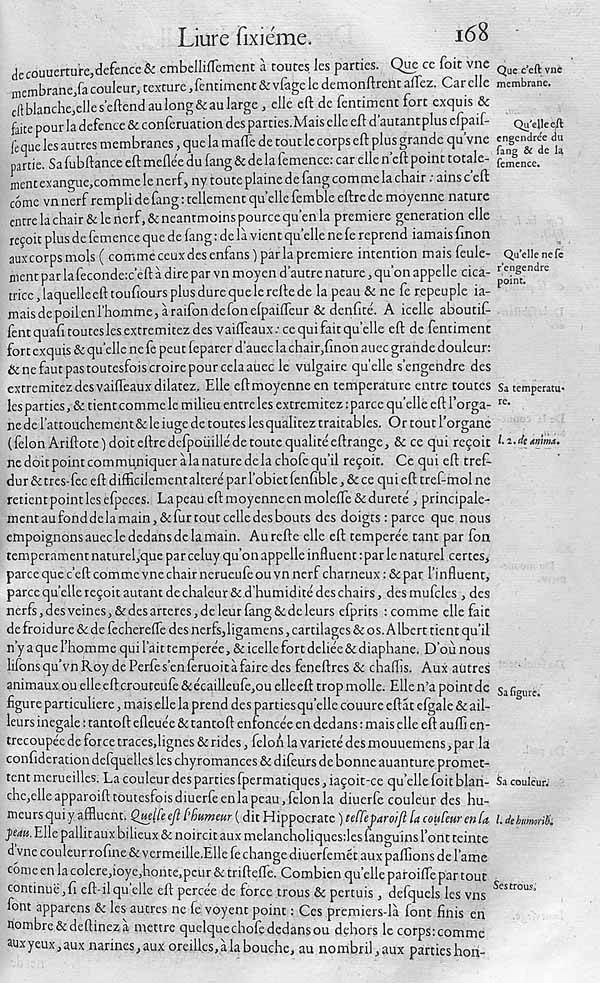 Liure sixiéme.
168
de couuerture, defence & embellissement à toutes les parties. Que ce soit vne
membrane, sa couleur, texture, sentiment & vsage le demonstrent assez. Car elle
est blanche, elle s'estend au long & au large, elle est de sentiment fort exquis &
faite pour la defence & conseruation des parties. Mais elle est d'autant plus espais-
se que les autres membranes, que la masse de tout le corps est plus grande qu'vne
partie. Sa substance est meslée du sang & de la semence: car elle n'est point totale-
ment exangue, comme le nerf, ny toute plaine de sang comme la chair: ains c'est
cóme vn nerf rempli de sang: tellement qu'elle semble estre de moyenne nature
entre la chair & le nerf, & neantmoins pource qu'en la premiere generation elle
reçoit plus de semence que de sang: de là vient qu'elle ne se reprend iamais sinon
aux corps mols (comme ceux des enfans) par la premiere intention mais seule-
ment par la seconde: c'est à dire par vn moyen d'autre nature, qu'on appelle cica-
trice, laquelle est tousiours plus dure que le reste de la peau & ne se repeuple ia-
mais de poil en l'homme, à raison de son espaisseur & densité. A icelle aboutis-
sent quasi toutes les extremitez des vaisseaux: ce qui fait qu'elle est de sentiment
fort exquis & qu'elle ne se peut separer d'auec la chair, sinon auec grande douleur:
& ne faut pas toutesfois croire pour cela auec le vulgaire qu'elle s'engendre des
extremitez des vaisseaux dilatez. Elle est moyenne en temperature entre toutes
les parties, & tient comme le milieu entre les extremitez: parce qu'elle est l'orga-
ne de l'attouchement & le iuge de toutes les qualitez traitables. Or tout l'organe
(selon Aristote) doit estre despoüillé de toute qualité estrange, & ce qui reçoit
ne doit point communiquer à la nature de la chose qu'il reçoit. Ce qui est tres-
dur & tres-sec est difficilement alteré par l'obiet sensible, & ce qui est tres-mol ne
retient point les especes. La peau est moyenne en molesse & dureté, principale-
ment au fond de la main, & sur tout celle des bouts des doigts: parce que nous
empoignons auec le dedans de la main. Au reste elle est temperée tant par son
temperament naturel, que par celuy qu'on appelle influent: par le naturel certes,
parce que c'est comme vne chair nerueuse ou vn nerf charneux: & par l'influent,
parce qu'elle reçoit autant de chaleur & d'humidité des chairs, des muscles, des
nerfs, des veines, & des arteres, de leur sang & de leurs esprits: comme elle fait
de froidure & de secheresse des nerfs, ligamens, cartilages & os. Albert tient qu'il
n'y a que l'homme qui l'ait temperée, & icelle fort deliée & diaphane. D'où nous
lisons qu'vn Roy de Perse s'en seruoit à faire des fenestres & chassis. Aux autres
animaux ou elle est crouteuse & écailleuse, ou elle est trop molle. Elle n'a point de
figure particuliere, mais elle la prend des parties qu'elle couure estāt esgale & ail-
leurs inegale: tantost esleuée & tantost enfoncée en dedans: mais elle est aussi en-
trecoupée de force traces, lignes & rides, selon la varieté des mouuemens, par la
consideration desquelles les chyromances & diseurs de bonne auanture promet-
tent merueilles. La couleur des parties spermatiques, iaçoit-ce qu'elle soit blan-
che, elle apparoist toutesfois diuerse en la peau, selon la diuerse couleur des hu-
meurs qui y affluent. Quelle est l'humeur (dit Hippocrate) telle paroist la couleur en la
peau. Elle pallit aux bilieux & noircit aux melancholiques: les sanguins l'ont teinte
d'vne couleur rosine & vermeille. Elle se change diuersemét aux passions de l'ame
cóme en la colere, ioye, honte, peur & tristesse. Combien qu'elle paroisse par tout
continuë, si est-il qu'elle est percée de force trous & pertuis, desquels les vns
sont apparens & les autres ne se voyent point: Ces premiers-là sont finis en
nombre & destinez à mettre quelque chose dedans ou dehors le corps: comme
aux yeux, aux narines, aux oreilles, à la bouche, au nombril, aux parties hon-
Que c'est vne
membrane.
Qu'elle est
engendrée du
sang & de la
semence.
Qu'elle ne se
r'engendre
point.
Sa temperatu-
re.
l. 2. de anima.
Sa figure.
Sa couleur.
l. de humorib.
Ses trous.